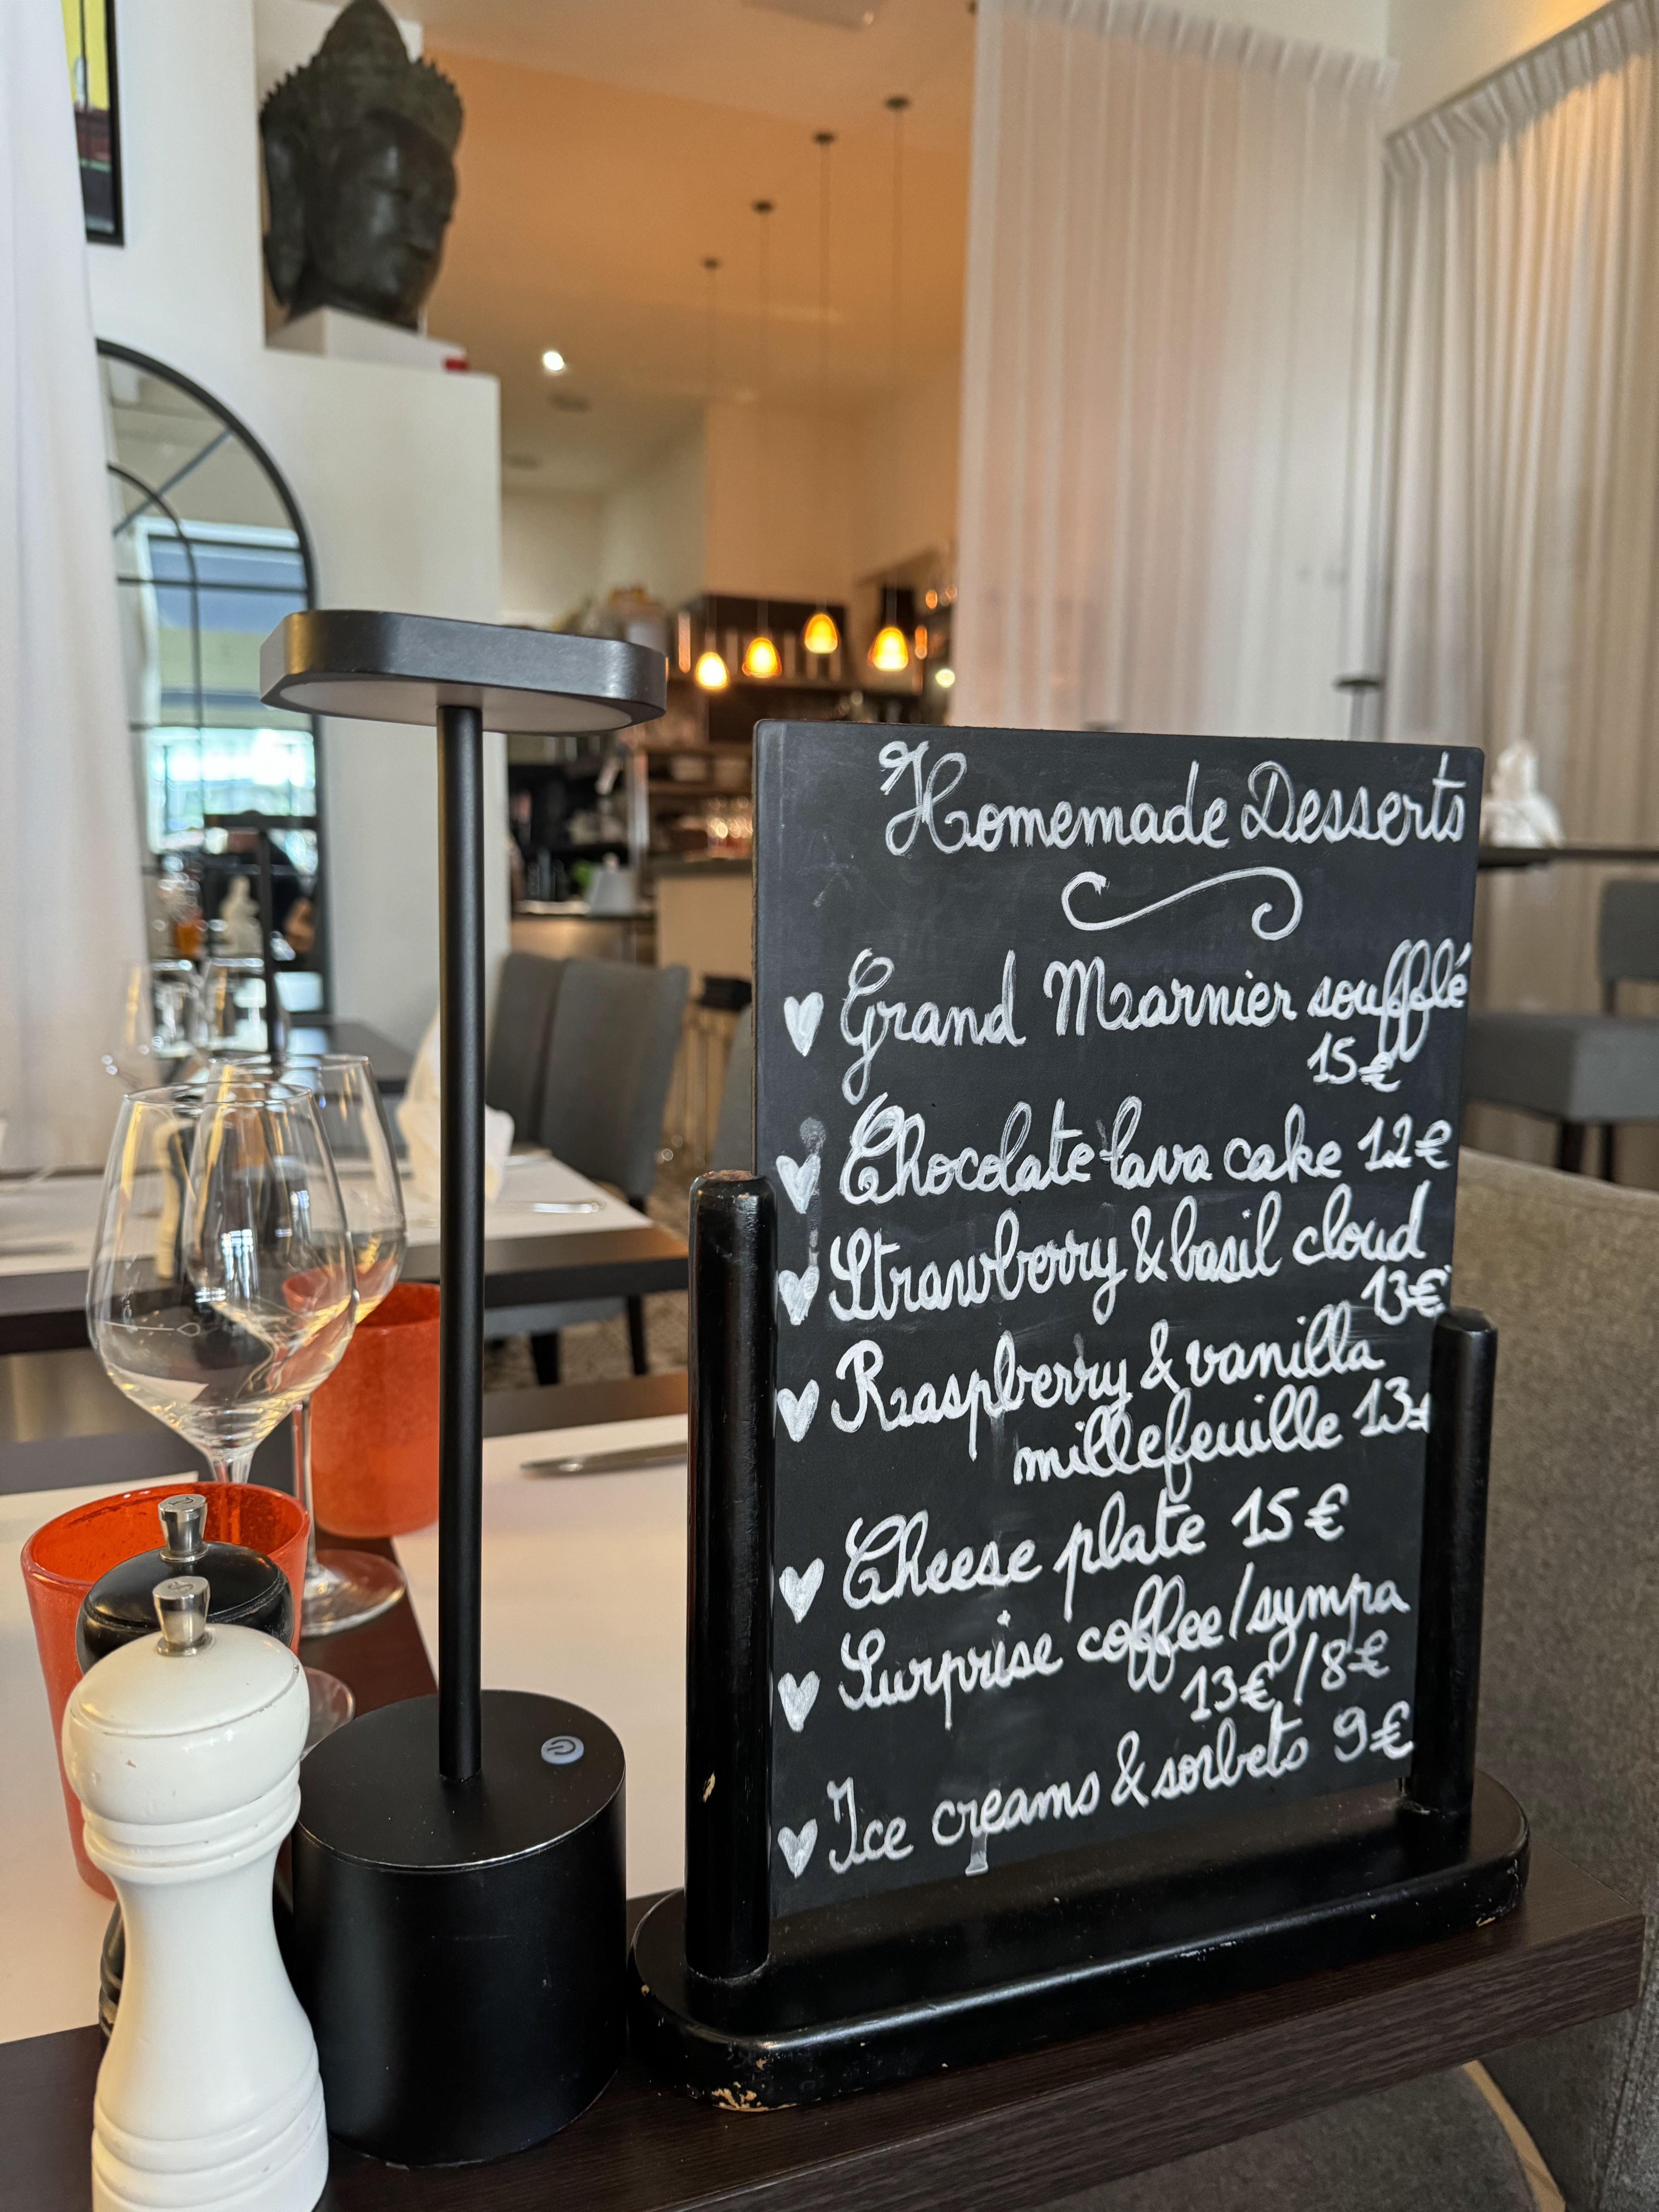 Homemade Desserts
Grand Marnier soufflé
15€
Chocolate lava cake 12€
Strawberry & basil cloud
13€
Raspberry & vanilla
millefeuille 13€
Cheese plate 15€
Surprise coffee/sympa
13€/8€
Ice creams & sorbets 9€